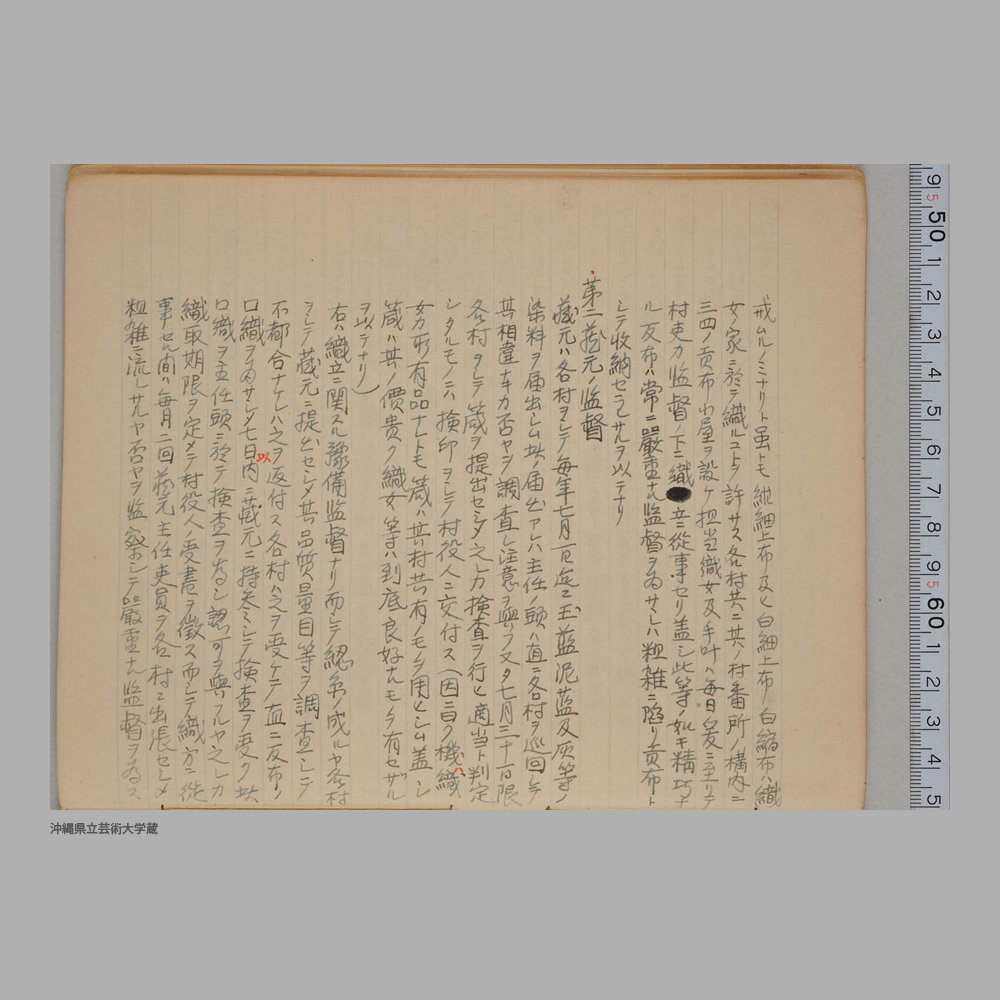 戒ムルノミナリト虽トモ紺細上布及ヒ白細上布ノ白縮布ハ織
女ノ家ニ於テ織ルコトヲ許サス各村共ニ其ノ村番所ノ構内ニ
三四ノ貢布小屋ヲ設ケ担当織女及手叶ハ毎日爰ニ至リテ
村吏カ監督ノ下ニ織立ニ従事セリ盖シ此等ノ如キ精巧ナ
ル反布ハ常ニ嚴重ナル監督ヲ為サヽレハ粗雑ニ陥リ貢布ト
シテ収納セラレサルヲ以テナリ
第二 蔵元ノ監督
蔵元ハ各村ヲシテ毎年七月一日迄ニ玉藍泥藍及灰等ノ
染料ヲ届出シム其ノ届出アレハ主任ノ頭ハ直ニ各村ヲ巡回シテ
其相違ナキカ否ヤヲ調査シ注意ヲ與フ又タ七月三十一日限
各村ヲシテ筬ヲ提出セシメ之レカ検査ヲ行ヒ適当ト判定
シタルモノニハ検印ヲシテ村役人ニ交付ス（因ニ曰ク機ハ織
女カ所有品ナレトモ筬ハ其村共有ノモノヲ用ヒシム盖シ
筬ハ其ノ價貴ク織女等ハ到底良好ナルモノヲ有セザル
ヲ以テナリ）
右ハ織立ニ関スル豫備監督ナリ而シテ総糸ノ成ルヤ各村
ヲシテ蔵元ニ提出セシメ其品質量目等ヲ調査シテ
不都合ナケレハ之ヲ返付ス各村ハ之ヲ受ケテ直ニ反布ノ
口織ヲ為サシメ七日以内ニ蔵元ニ持参シテ検査ヲ受ク其
口織ヲ主任頭ニ於テ検査ヲ為シ認可ヲ與フルヤ之レカ
織取期限ヲ定メテ村役人ノ受書ヲ徴ス而シテ織方ニ従
事セル間ハ毎月二回蔵元主任吏員ヲ各村ニ出張セシメ
粗雑ニ流レサルヤ否ヤヲ監察シテ嚴重ナル監督ヲ為ス
9 5 50 1 2 3 4 5 6 7 8 9 5 60 1 2 3 4 5
沖縄県立芸術大学蔵